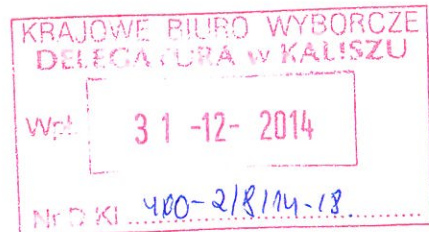 KRAJOWE BIURO WYBORCZE
DELEGATURA w KALISZU
Wpł. 31-12-2014
Nr D KI 400-2/8/14-18